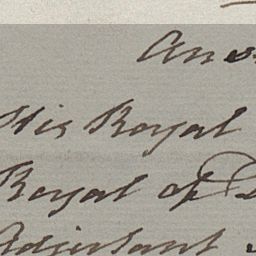 His Royal
Royal of
Adjutant